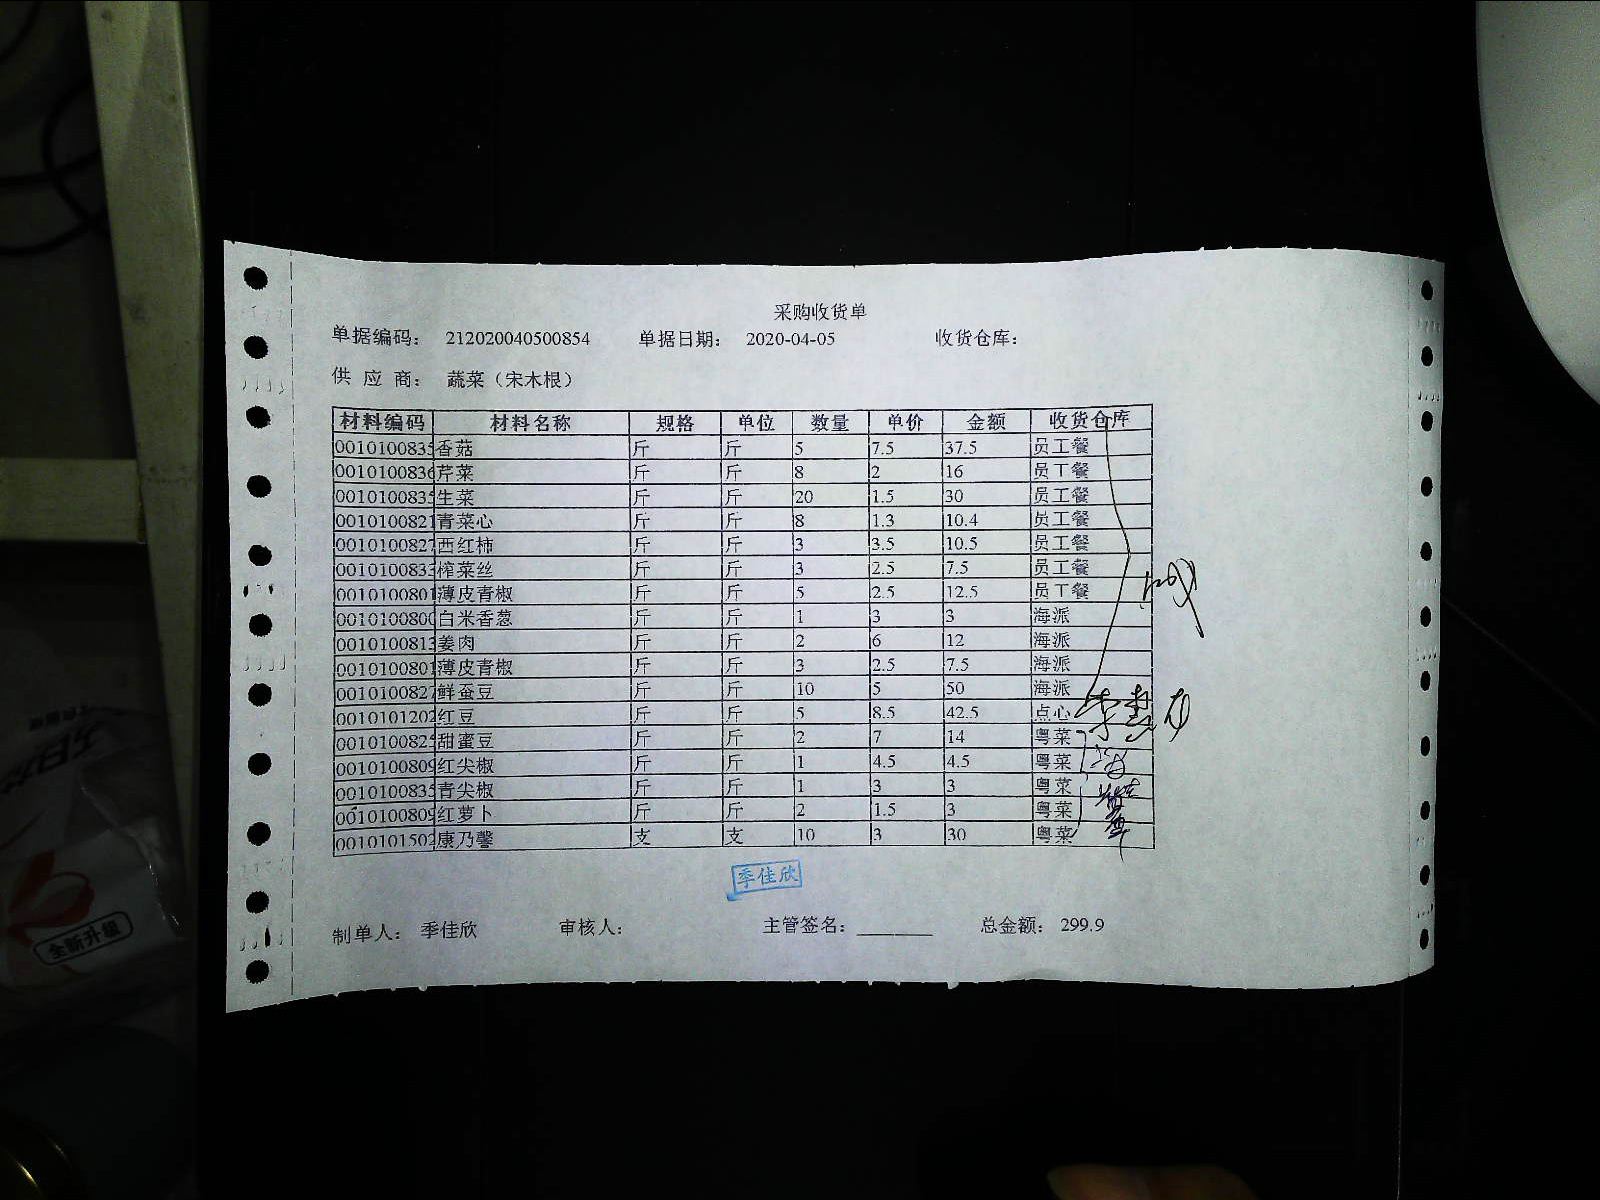 采购收货单
单据编码： 212020040500854 单据日期： 2020-04-05 收货仓库：
供 应 商： 蔬菜（宋木根）
材料编码 材料名称 规格 单位 数量 单价 金额 收货仓库
0010100835 香菇 斤 斤 5 7.5 37.5 员工餐
0010100836 芹菜 斤 斤 8 2 16 员工餐
0010100835 生菜 斤 斤 20 1.5 30 员工餐
0010100821 青菜心 斤 斤 8 1.3 10.4 员工餐
0010100827 西红柿 斤 斤 3 3.5 10.5 员工餐
0010100833 榨菜丝 斤 斤 3 2.5 7.5 员工餐
0010100801 薄皮青椒 斤 斤 5 2.5 12.5 员工餐
0010100800 白米香葱 斤 斤 1 3 3 海派
0010100813 姜肉 斤 斤 2 6 12 海派
0010100801 薄皮青椒 斤 斤 3 2.5 7.5 海派
0010100827 鲜蚕豆 斤 斤 10 5 50 海派
0010101202 红豆 斤 斤 5 8.5 42.5 点心
0010100825 甜蜜豆 斤 斤 2 7 14 粤菜
0010100809 红尖椒 斤 斤 1 4.5 4.5 粤菜
0010100835 青尖椒 斤 斤 1 3 3 粤菜
0010100809 红萝卜 斤 斤 2 1.5 3 粤菜
0010101502 康乃馨 支 支 10 3 30 粤菜
季佳欣
制单人： 季佳欣 审核人： 主管签名： 总金额： 299.9
全新升级